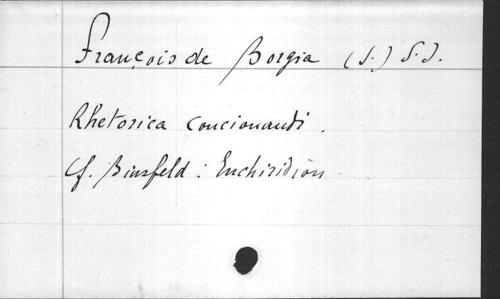 François de Borgia (S.) S.J.
Rhetorica concionandi.
Cf. Binsfeld : Enchiridion